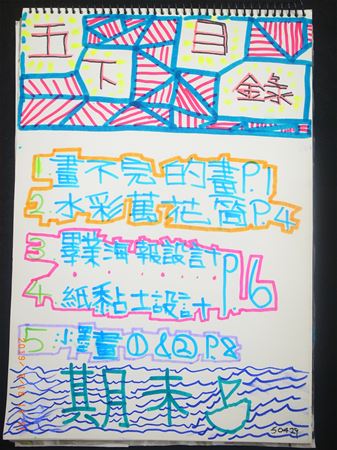 五下目錄
1. 畫不完的畫P.1
2. 水彩萬花筒P.4
3. 畢業海報設計
P6
4. 紙黏土設計
5. 水墨畫①&②P.8
期末
50429